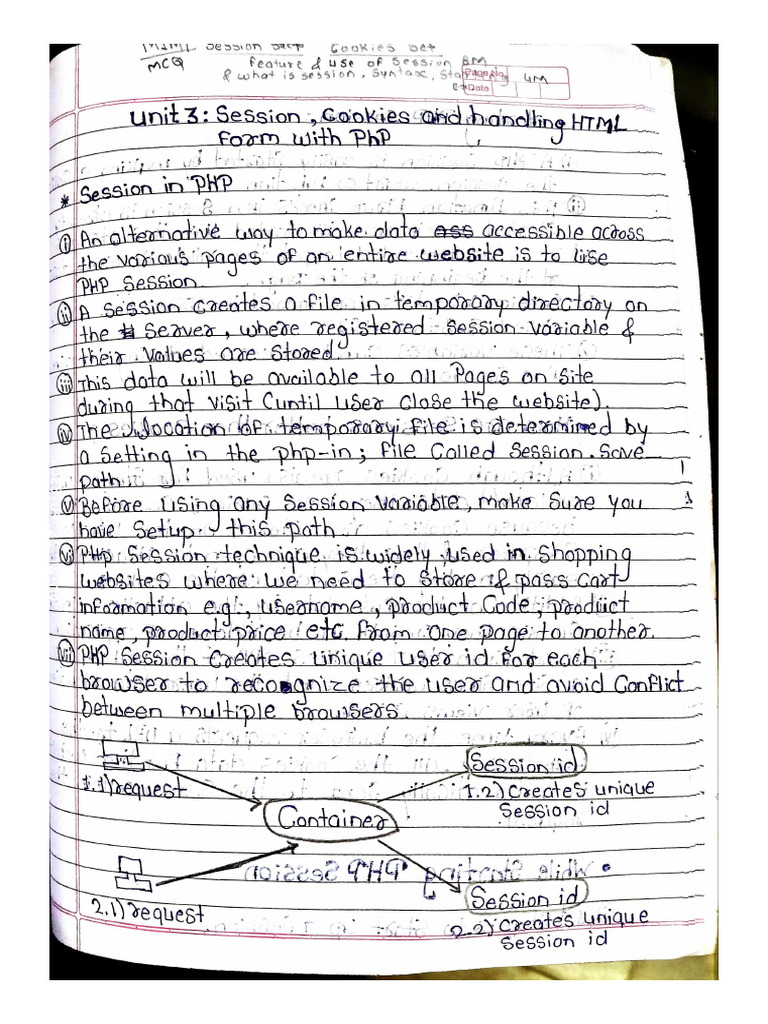 MCQ Session Cookies Set
feature & use of Session 8M
& what is session, Syntax, Page No 4M
Date
Unit 3: Session, Cookies and handling HTML
Form with PhP
* Session in PHP
(i) An alternative way to make data accessible across
the various pages of an entire website is to use
PHP Session.
(ii) A Session creates a file in temporary directory on
the Server, where registered Session variable &
their values are stored.
(iii) This data will be available to all Pages on site
during that visit (until user close the website).
(iv) The location of temporary file is determined by
a setting in the php-in; file Called Session.Save
path.
(v) Before using any Session variable, make Sure you
have Setup this path.
(vi) PHP Session technique is widely used in Shopping
websites where we need to store & pass Cart
information e.g:, username, product Code, product
name, product price etc. from one page to another.
(vii) PHP Session creates unique user id for each
browser to recognize the user and avoid Conflict
between multiple browsers.
Session id
1.1) request
1.2) Creates unique
Session id
Container
Session id
2.1) request
2.2) Creates unique
Session id